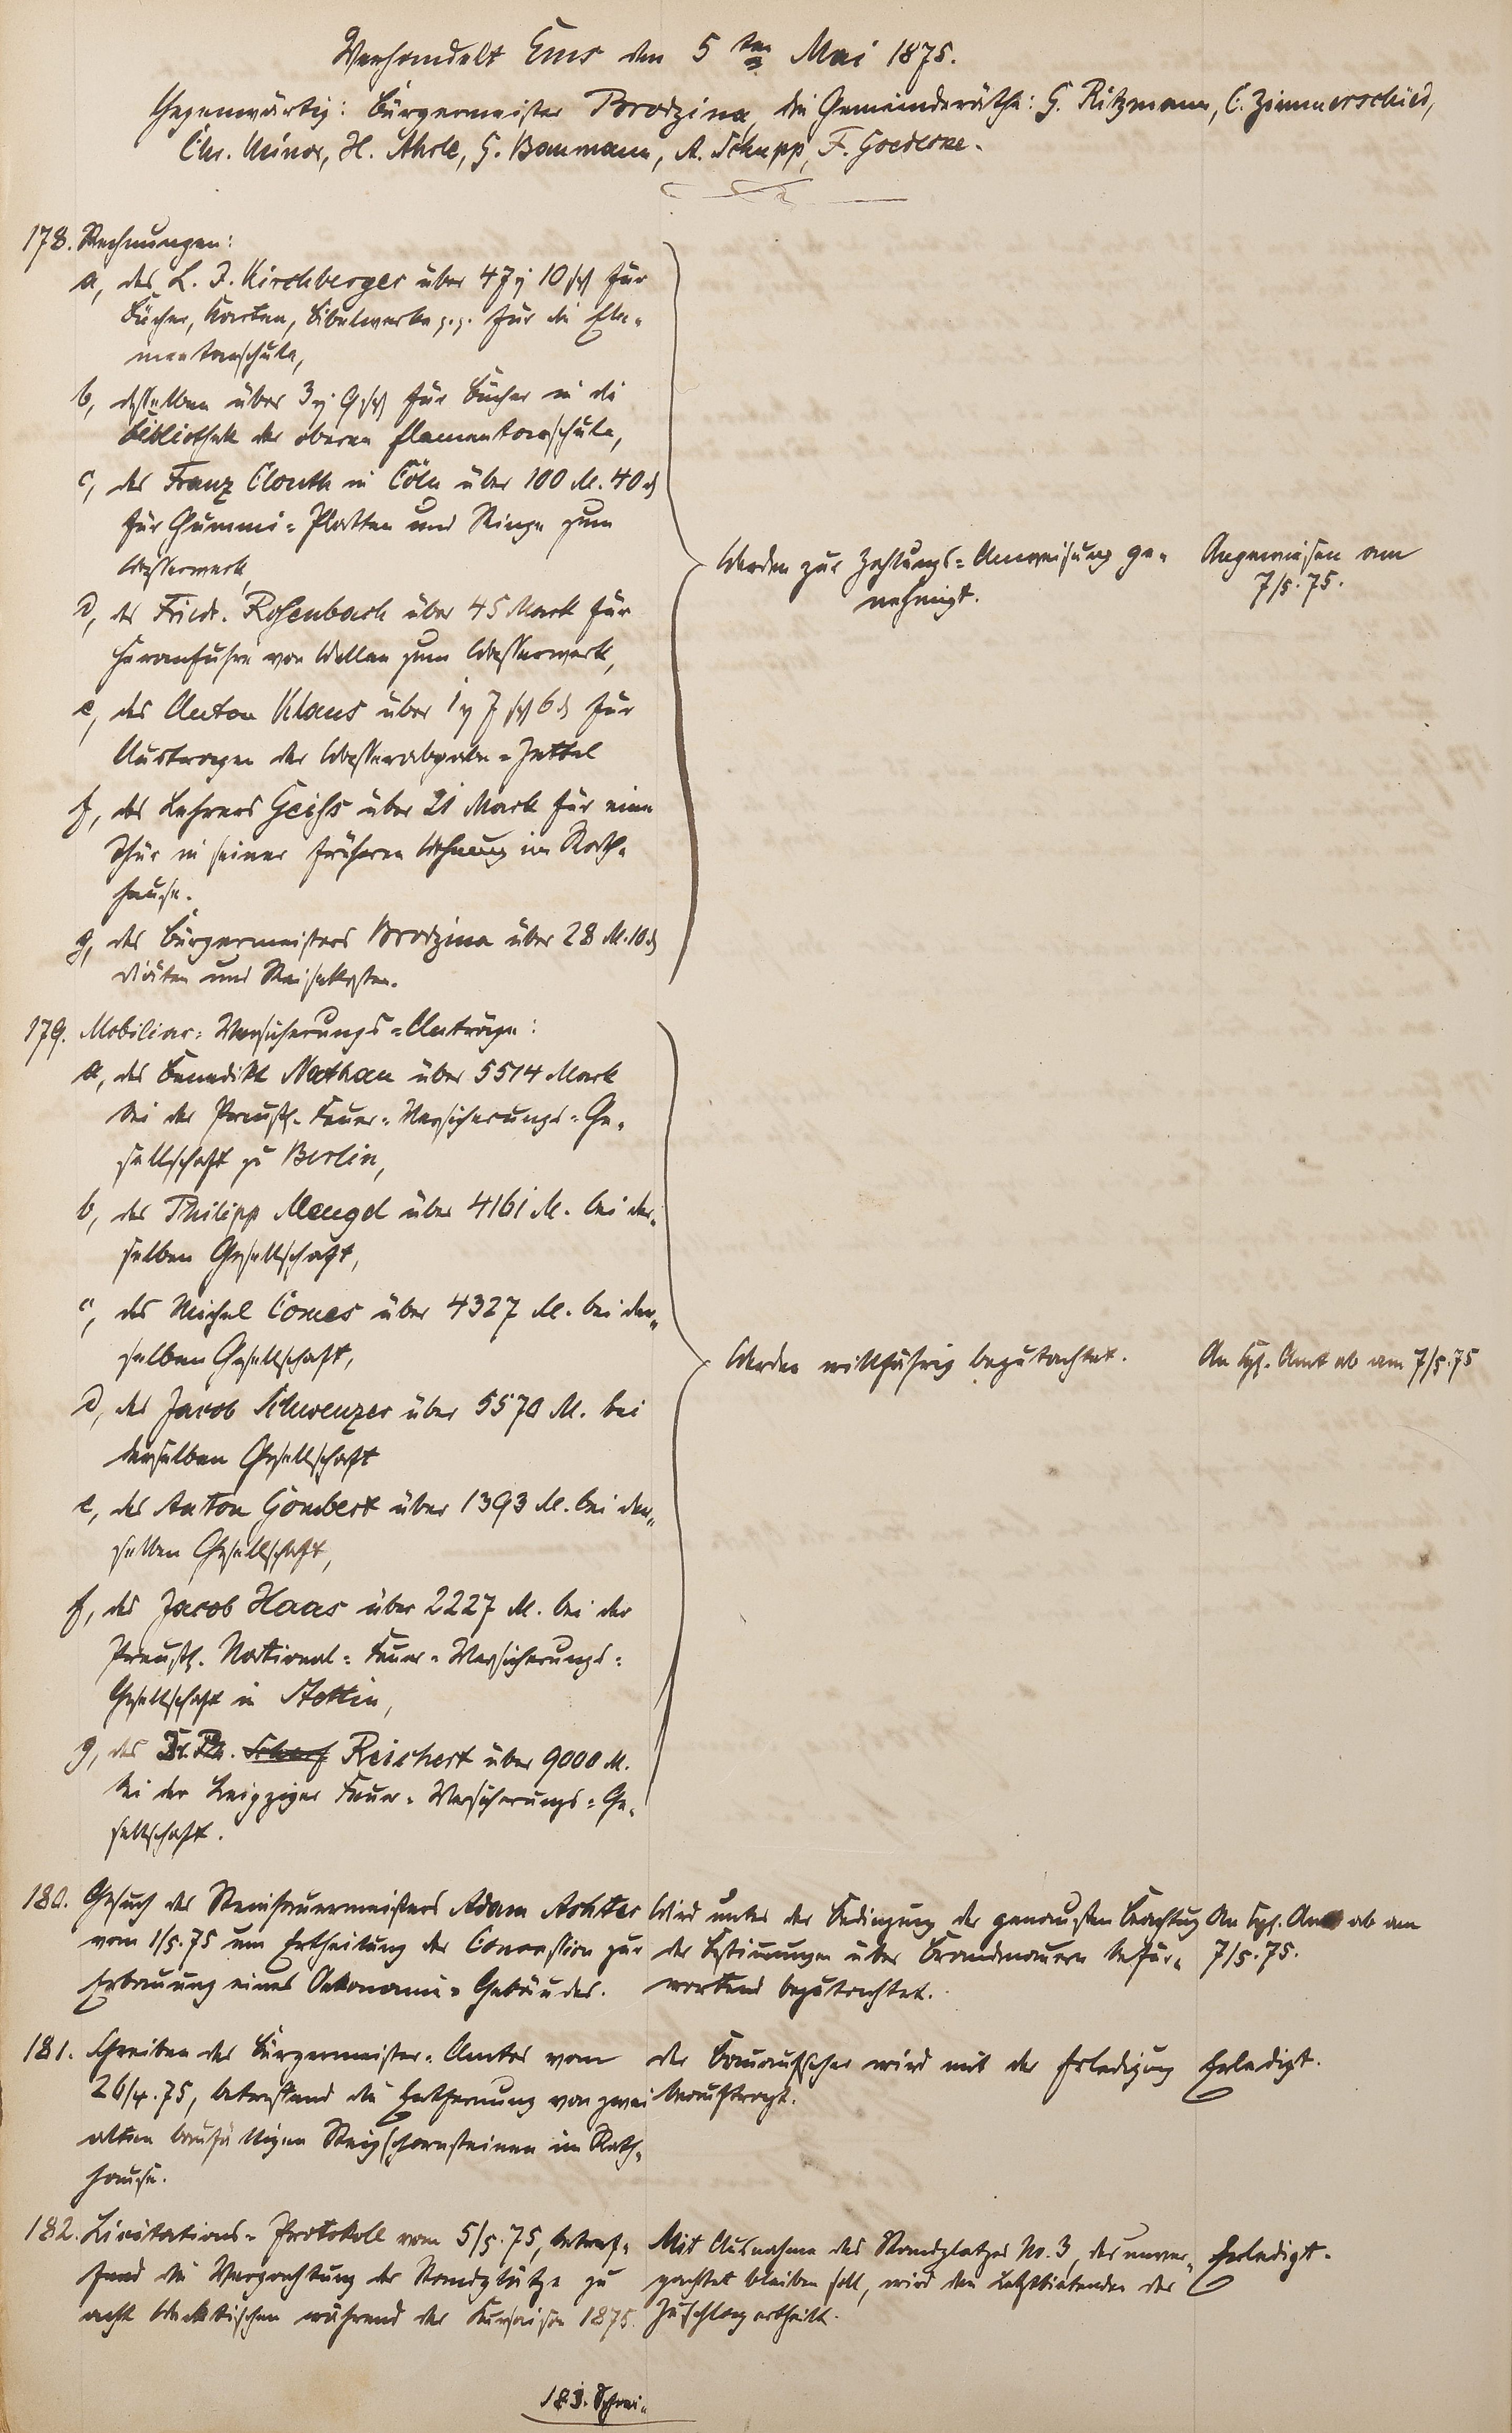 Verhandelt Ems den 5ten Mai 1875.
Gegenwärtig: Bürgermeister Brodzina, die Gemeinderäthe: G. Ritzmann, C. Zimmerschied,
Chr. Minor, H. Ahrle, G. Baumann, A. Schupp, F. Goedecke.
178. Rechnungen:
a, des L. J. Kirchberger über 47 10 für
Bücher, Karten, Bibelwerke p.p. für die Ele-
mentarschule,
b, desselben über 3 9 für Bücher in die
Bibliothek der oberen Elementarschule,
c, des Franz Clouth in Cöln über 100 M. 40 d
für Gummi-Platten und Ringe zum
Wasserwerk,
d, des Friedr. Rosenbach über 45 Mark für
Heranfuhre von Wellen zum Wasserwerk,
e, des Anton Klaus über 1 7 6 d für
Austragen der Wasserabgabe-Zettel
f, des Lehrers Geiss über 21 Mark für eine
Thür in seiner früheren Wohnung im Rath-
hause.
g, des Bürgermeisters Brodzina über 28 M. 10 d
Diäten und Reisekosten.
Werden zur Zahlungs-Anweisung ge-
nehmigt.
Angewiesen am
7/5. 75.
179. Mobiliar-Versicherungs-Anträge:
a, des Benedikt Nathan über 5514 Mark
bei der Preuß. Feuer-Versicherungs-Ge-
sellschaft zu Berlin,
b, des Philipp Mengel über 4161 M. bei der-
selben Gesellschaft,
c, des Michel Comes über 4327 M. bei der-
selben Gesellschaft,
d, des Jacob Schwenzer über 5570 M. bei
derselben Gesellschaft
e, des Anton Gombert über 1393 M. bei der-
selben Gesellschaft,
f, des Jacob Haas über 2227 M. bei der
Preuß. National-Feuer-Versicherungs-
Gesellschaft in Stettin,
g, des Dr. Reichert über 9000 M.
bei der Leipziger Feuer-Versicherungs-Ge-
sellschaft.
Werden willfährig begutachtet.
An Kgl. Amt ab am 7/5. 75
180. Gesuch des Steinhauermeisters Adam Achter
vom 1/5. 75 um Ertheilung der Concession zur
Erbauung eines Oekonomie-Gebäudes.
Wird unter der Bedingung der genausten Beachtung
der Bestimmungen über Brandmauern befür-
wortend begutachtet.
An Kgl. Amt ab am
7/5. 75.
181. Schreiben des Bürgermeister-Amtes vom
26/4. 75, betreffend die Entfernung von zwei
alten baufälligen Steigschornsteinen im Rath-
hause.
Der Bauaufseher wird mit der Erledigung
beauftragt.
Erledigt.
182. Licitations-Protokoll vom 5/5. 75, betref-
fend die Verpachtung der Standplätze zu
acht Wecktischen während der Kursaison 1875.
Mit Ausnahme des Standplatzes No. 3, der unver-
pachtet bleiben soll, wird den Letztbietenden der
Zuschlag ertheilt.
Erledigt.
183. Schrei-